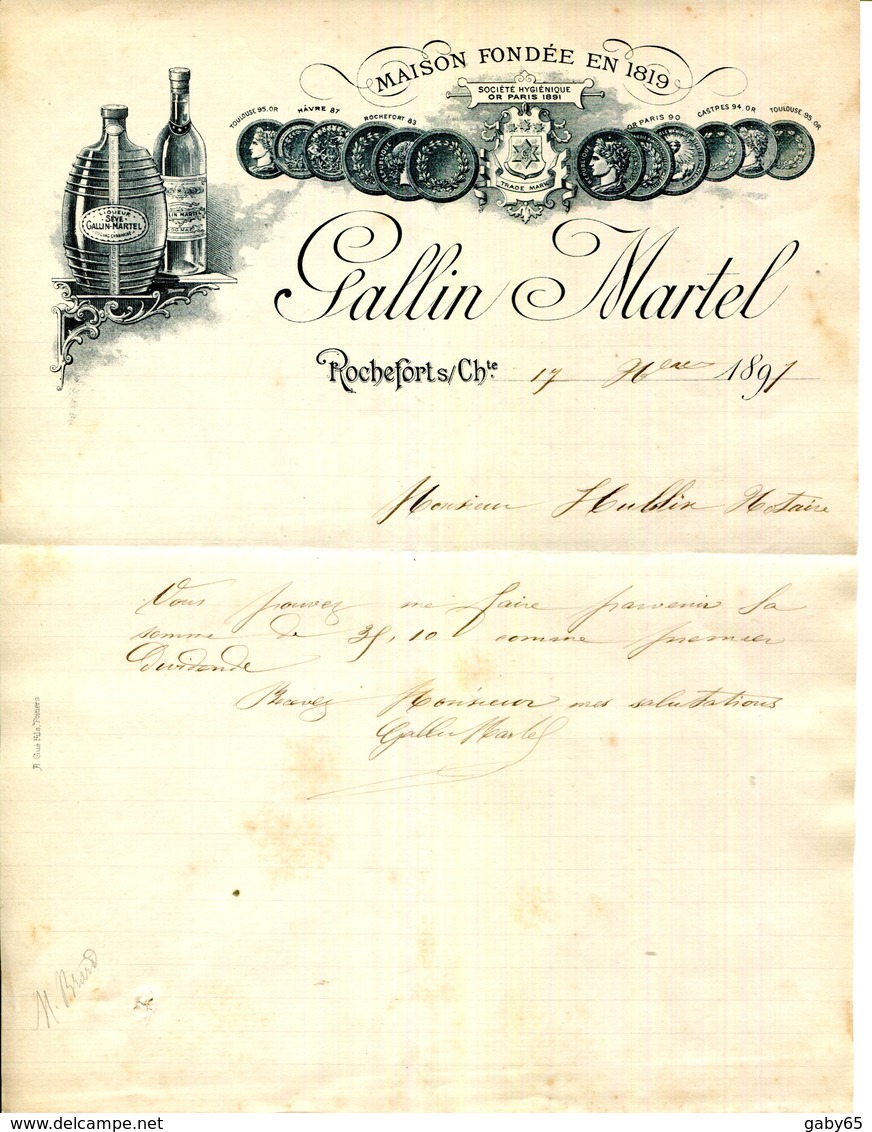 MAISON FONDÉE EN 1819
SOCIÉTÉ HYGIÈNIQUE
OR PARIS 1891
TOULOUSE 95. OR
HÂVRE 87
ROCHEFORT 83
OR PARIS 90
CASTRES 94. OR
TOULOUSE 95. OR
TRADE MARK
LIQUEUR
SÈVE
GALLIN-MARTEL
Gallin Martel
Rochefort s/Chte. 17 9bre 1897
Monsieur Hullin Notaire
Vous pouvez me faire parvenir la
somme de 35,10 comme premier
Dividende
Recevez Monsieur mes salutations
Gallin Martel
A. Gué Fils. Poitiers
M. Brard
delcampe.net
gaby65